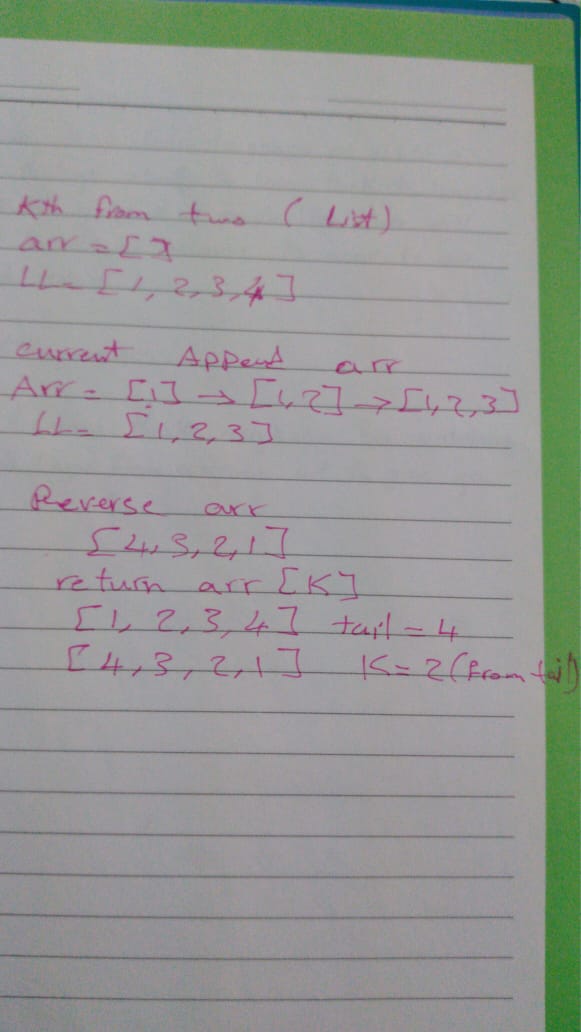 Kth from two ( List)
arr = []
LL = [1, 2, 3, 4]
current Append arr
Arr = [1] → [1, 2] → [1, 2, 3]
LL = [1, 2, 3]
Reverse arr
[4, 3, 2, 1]
return arr [K]
[1, 2, 3, 4] tail = 4
[4, 3, 2, 1] K = 2 (From tail)